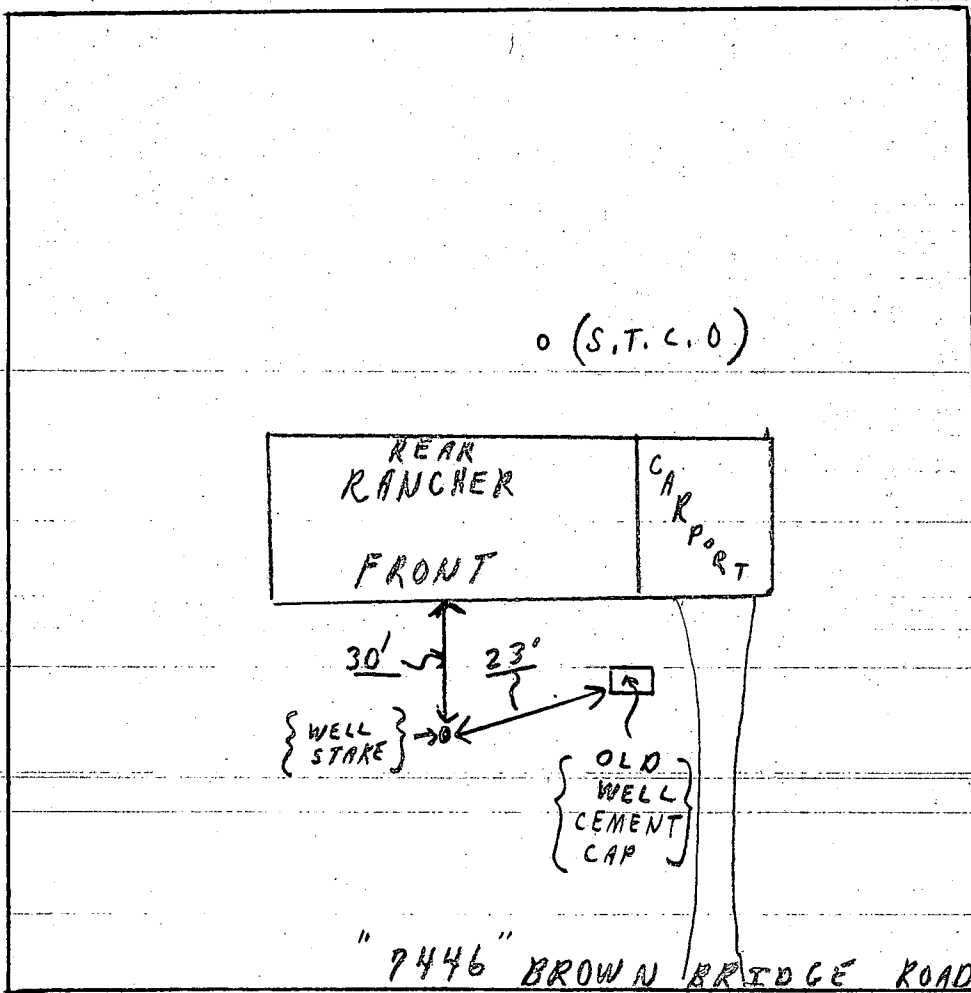 (S.T.C.O)
REAR
RANCHER
FRONT
CARPORT
30'
23'
{WELL
STAKE}
{OLD
WELL
CEMENT
CAP}
"7446" BROWN BRIDGE ROAD